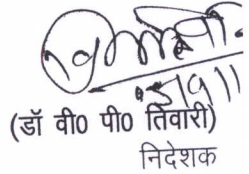 (डॉ वी0 पी0 तिवारी)
निदेशक